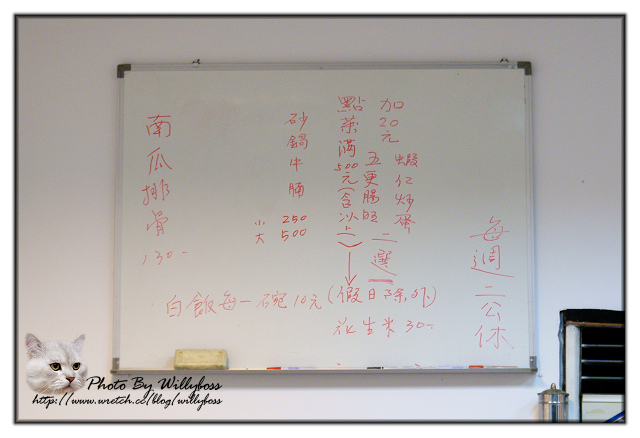 每週二公休
蝦仁炒蛋
加20元
五更腸旺
二選一
點菜滿500元(含以上)
(假日除外)
砂鍋牛腩
小 250
大 500
南瓜排骨
130-
白飯每一碗10元
花生米 30-
Photo By Willyboss
http://www.wretch.cc/blog/willyboss